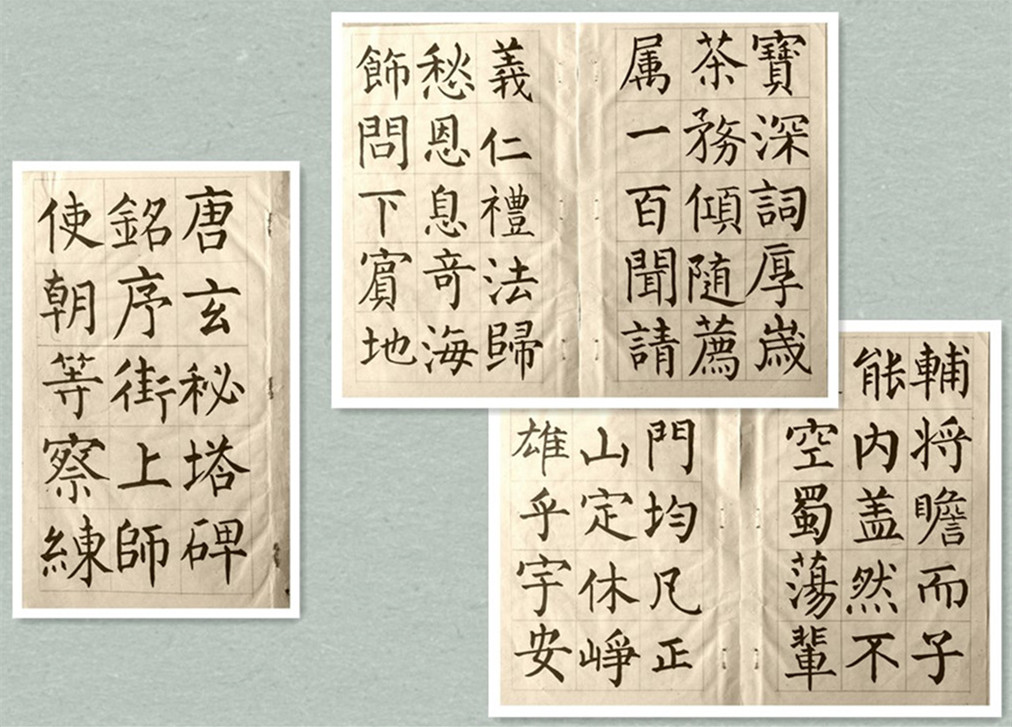 唐玄秘塔碑
銘序街上師
使朝等察練
寶深詞厚歲
茶務傾随薦
属一百聞請
義仁禮法歸
愁恩息奇海
飾問下賓地
輔将瞻而子
能内盖然不
空蜀蕩輩
門均凡正
山定休崢
雄乎宇安